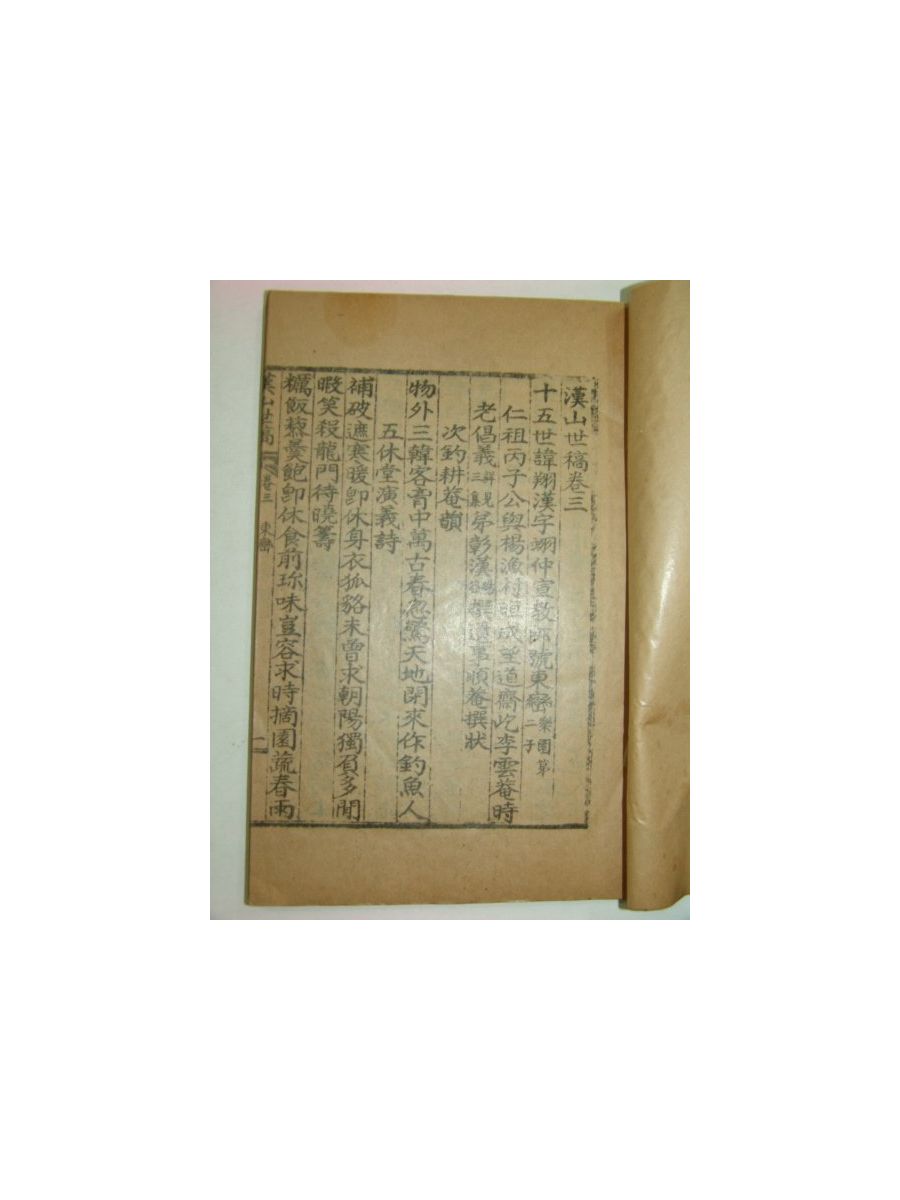 漢山世稿卷三
十五世諱翔漢字翊仲宣教郎號東巒樂園第二子
仁祖丙子公與楊漁村 成望道齋屹李雲菴時
老倡義詳見三集弟彭漢 撰遺事順菴撰狀
次釣耕菴韻
物外三韓客膏中萬古春忽驚天地閉來作釣魚人
五休堂演義詩
補破遮寒暖卽休身衣狐貉未曾求朝陽獨負多閒
暇笑殺龍門待曉籌
糲飯藜羹飽卽休食前珍味豈容求時摘園蔬春雨
漢山世稿 卷三 東巒 一